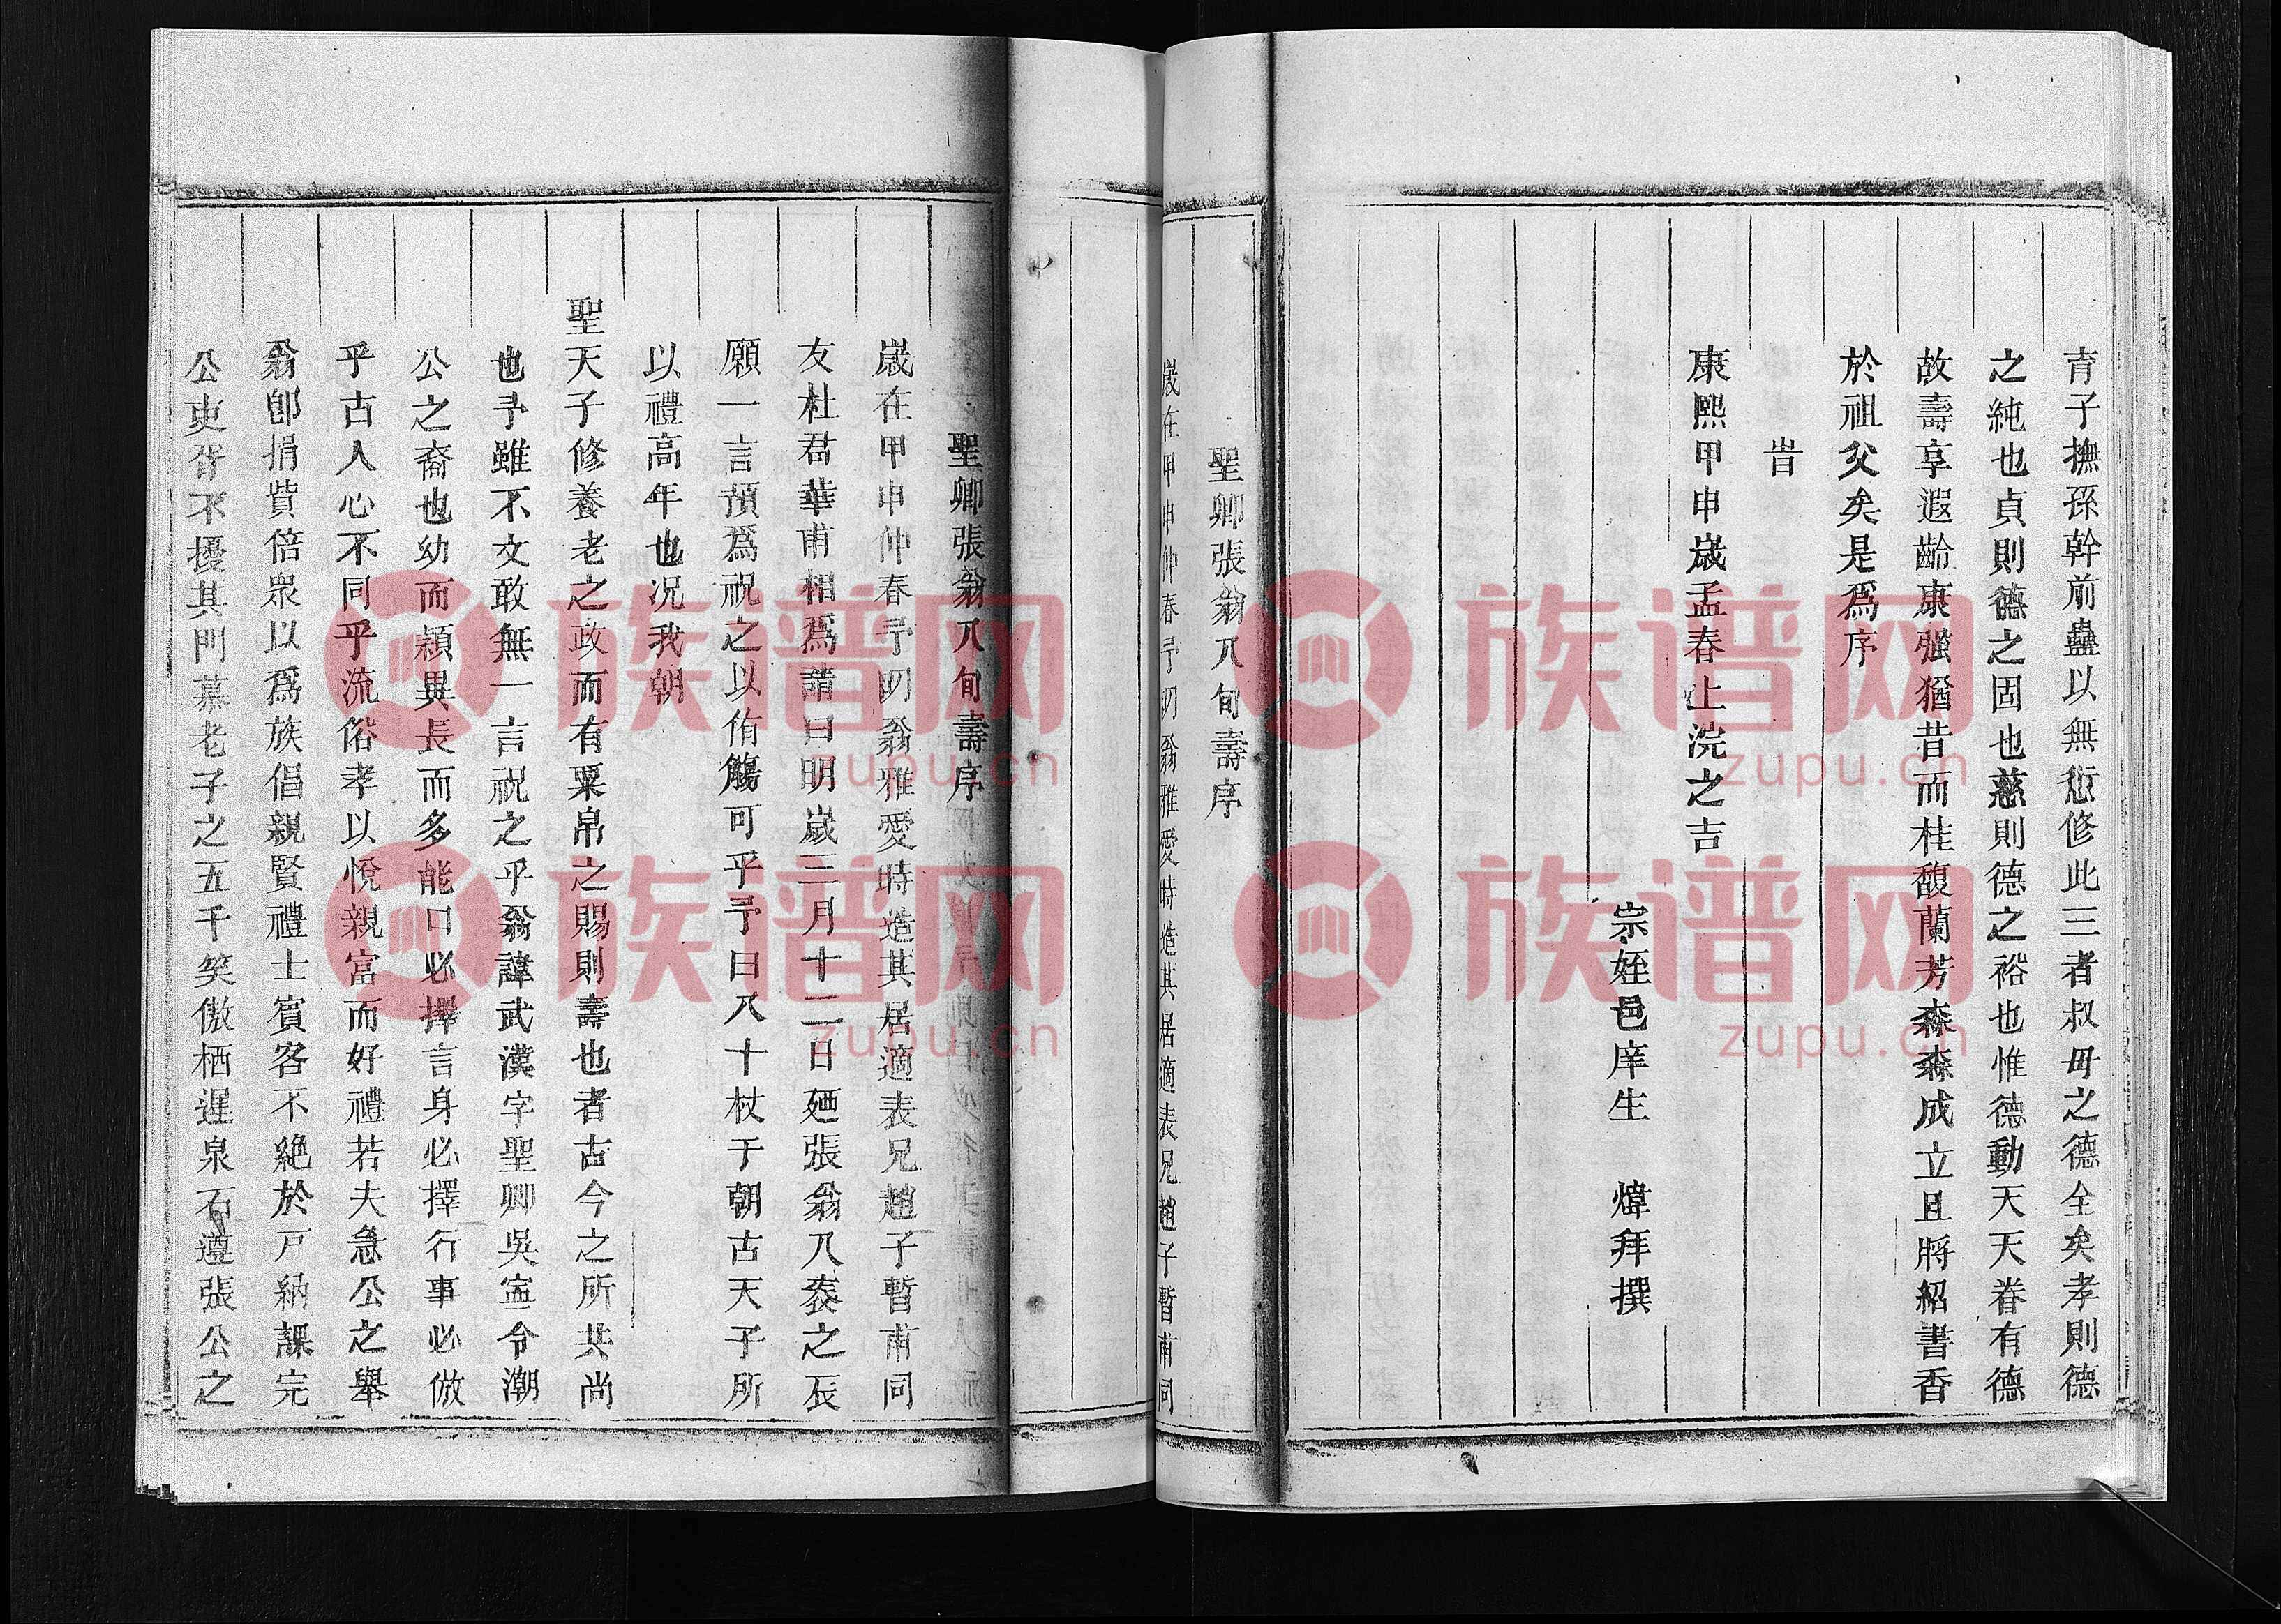 育子撫孫幹前蠱以無愆修此三者叔母之德全矣孝則德
之純也貞則德之固也慈則德之裕也惟德動天天眷有德
故壽享遐齡康强猶昔而桂馥蘭芳森森成立且將紹書香
於祖父矣是爲序
旹
康熙甲申歲孟春上浣之吉
宗姪邑庠生　煒拜撰
聖卿張翁八旬壽序
歲在甲申仲春予叨翁雅愛時造其居適表兄趙子暫甫同
聖卿張翁八旬壽序
歲在甲申仲春予叨翁雅愛時造其居適表兄趙子暫甫同
友杜君華甫相爲請曰明歲三月十二日廼張翁八袠之辰
願一言預爲祝之以侑觴可乎予曰八十杖于朝古天子所
以禮高年也况我朝
聖天子修養老之政而有粟帛之賜則壽也者古今之所共尚
也予雖不文敢無一言祝之乎翁諱武漢字聖卿吳寍令潮
公之裔也幼而穎異長而多能口必擇言身必擇行事必倣
乎古人心不同乎流俗孝以悅親富而好禮若夫急公之舉
翁卽捐貲倍眾以爲族倡親賢禮士賓客不絶於戸納課完
公吏胥不擾其門慕老子之五千笑傲栖遲泉石遵張公之
族谱网
zupu.cn
族谱网
zupu.cn
族谱网
zupu.cn
族谱网
zupu.cn